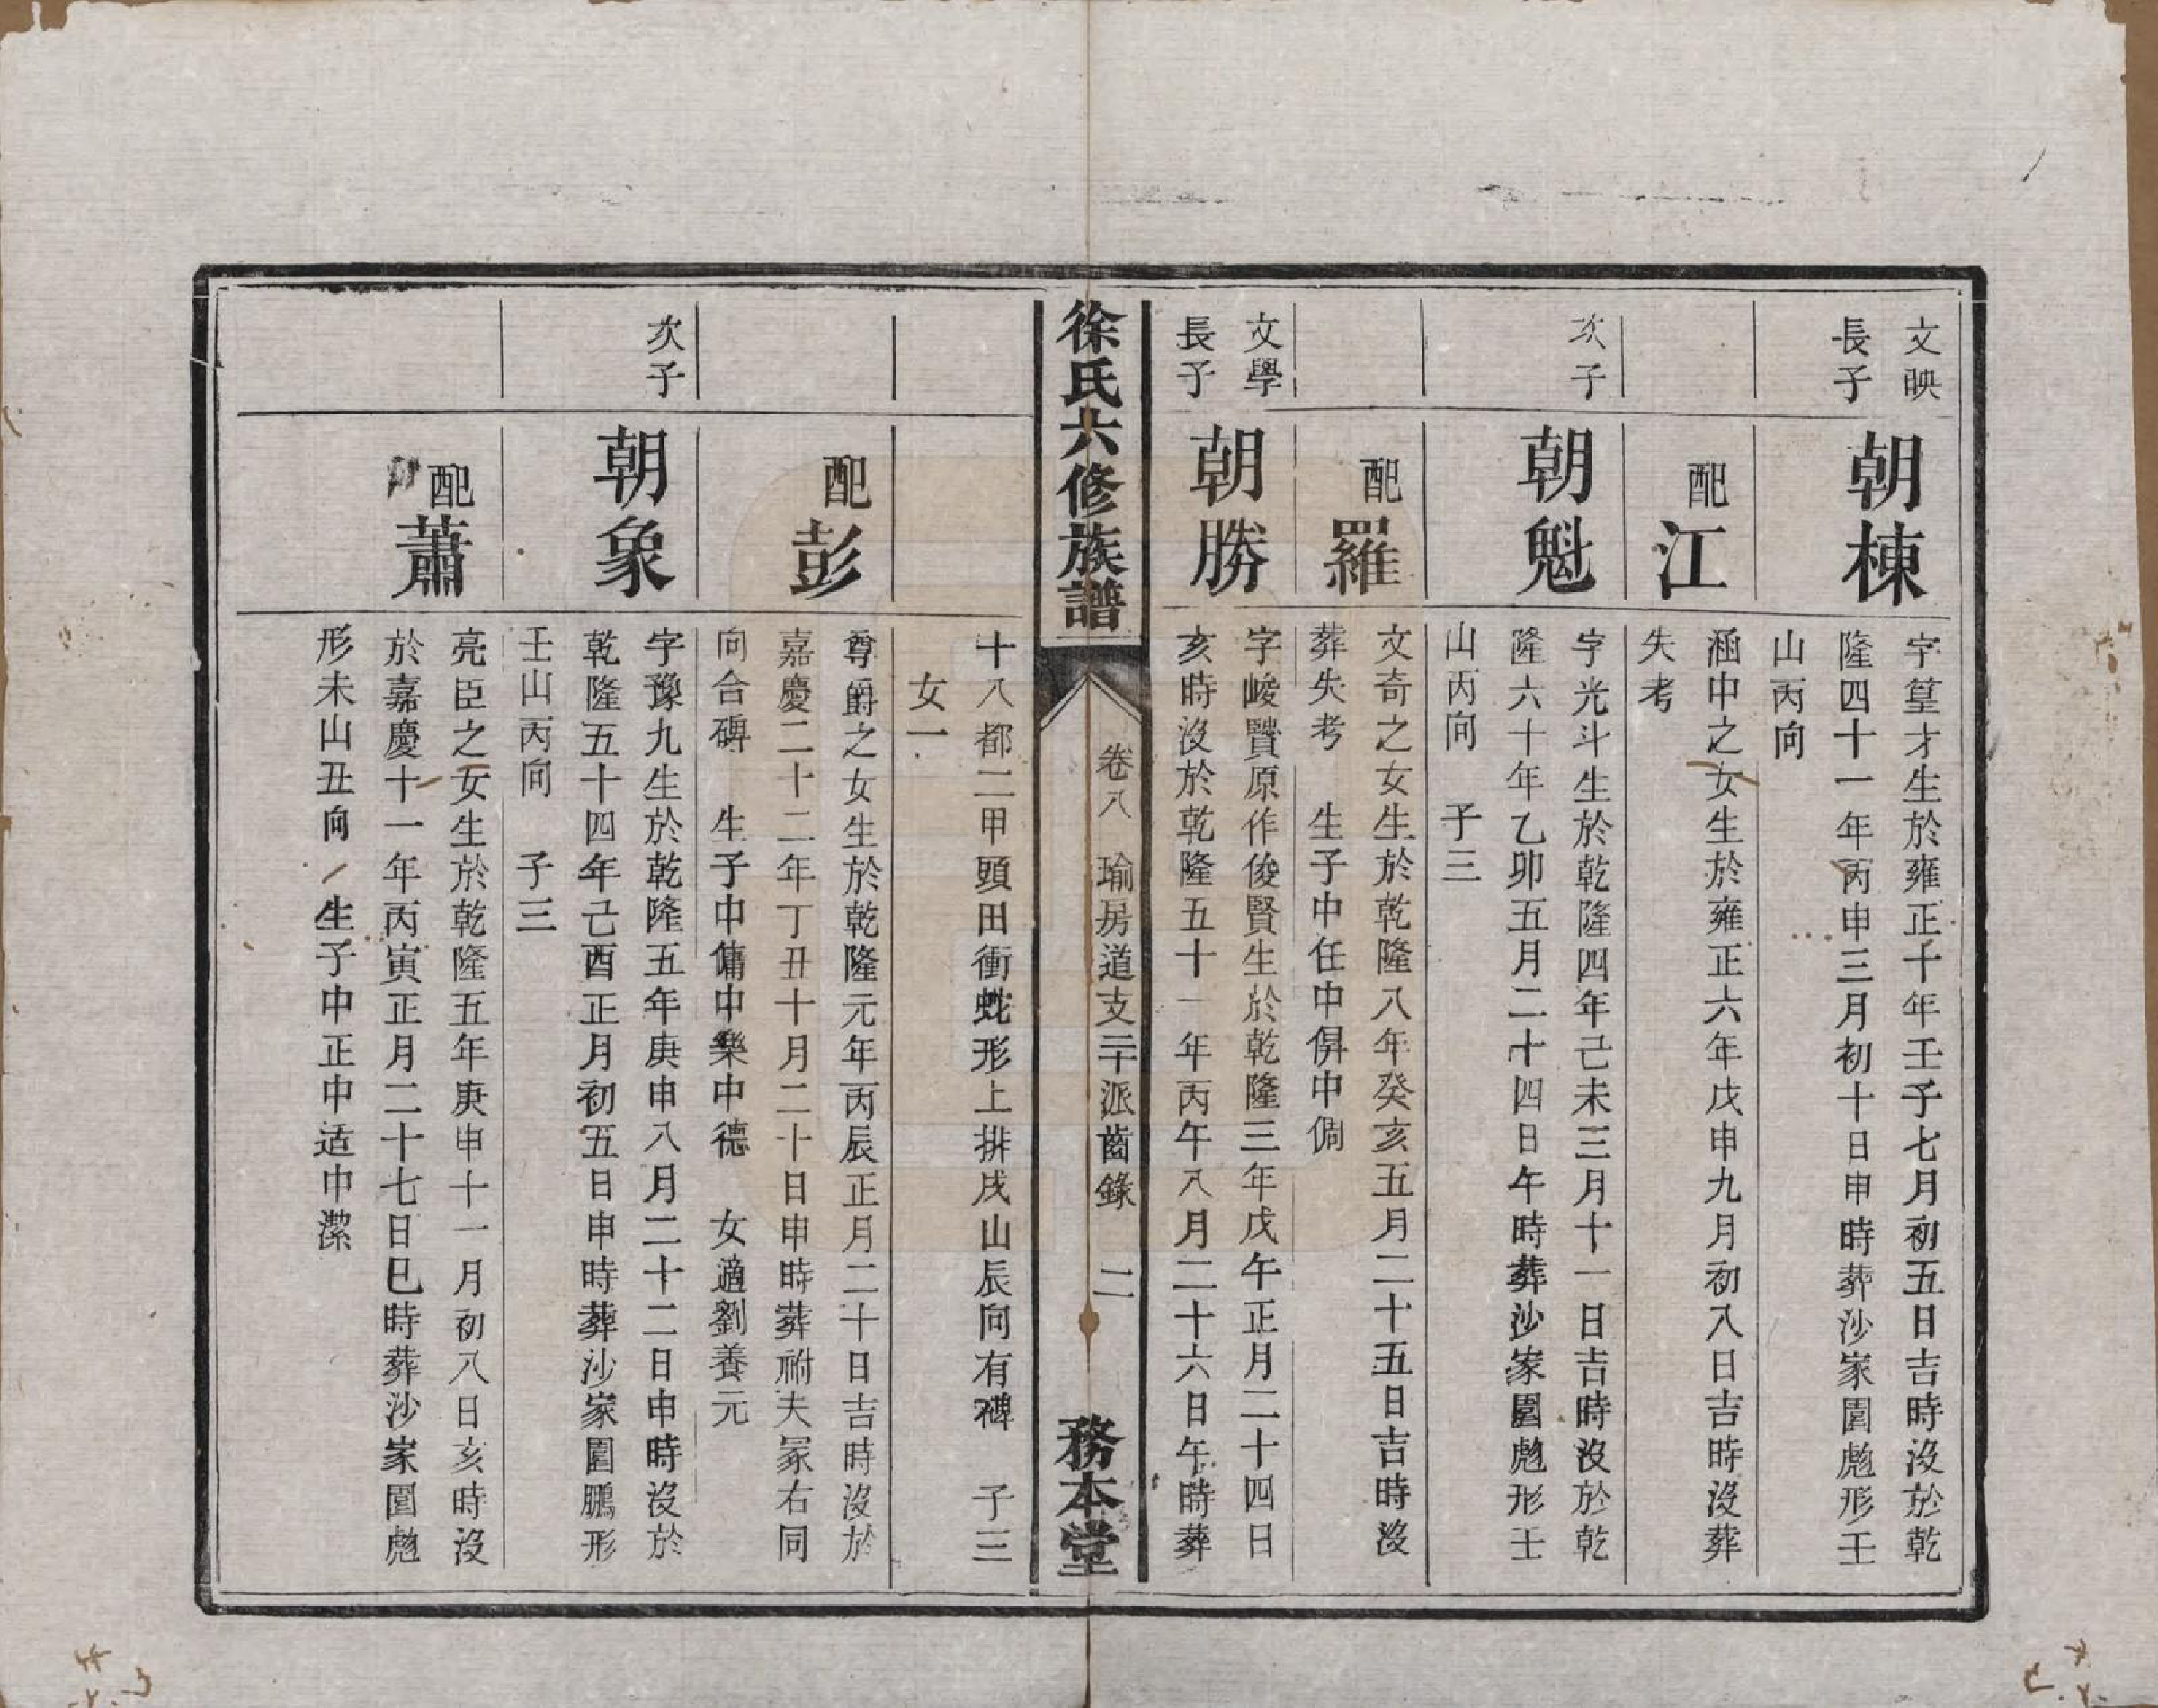 文映
長子
朝棟
字篁才生於雍正十年壬子七月初五日吉時沒於乾
隆四十一年丙申三月初十日申時葬沙家園彪形壬
山丙向
配江
涵中之女生於雍正六年戊申九月初八日吉時沒葬
失考
次子
朝魁
字光斗生於乾隆四年己未三月十一日吉時沒於乾
隆六十年乙卯五月二十四日午時葬沙家園彪形壬
山丙向 子三
配羅
文奇之女生於乾隆八年癸亥五月二十五日吉時沒
葬失考 生子中任中僎中倜
文學
長子
朝勝
字峻贒原作俊賢生於乾隆三年戊午正月二十四日
亥時沒於乾隆五十一年丙午八月二十六日午時葬
徐氏六修族譜
卷八 瑜房道支二十派齒錄 二
務本堂
十八都二甲頭田衝虵形上排戌山辰向有碑 子三
女一
配彭
尊爵之女生於乾隆元年丙辰正月二十日吉時沒於
嘉慶二十二年丁丑十月二十日申時葬祔夫冢右同
向合碑 生子中傭中樂中德 女適劉養元
次子
朝象
字豫九生於乾隆五年庚申八月二十二日申時沒於
乾隆五十四年己酉正月初五日申時葬沙家園鵬形
壬山丙向 子三
配蕭
亮臣之女生於乾隆五年庚申十一月初八日亥時沒
於嘉慶十一年丙寅正月二十七日巳時葬沙家園彪
形未山丑向 生子中正中适中潔